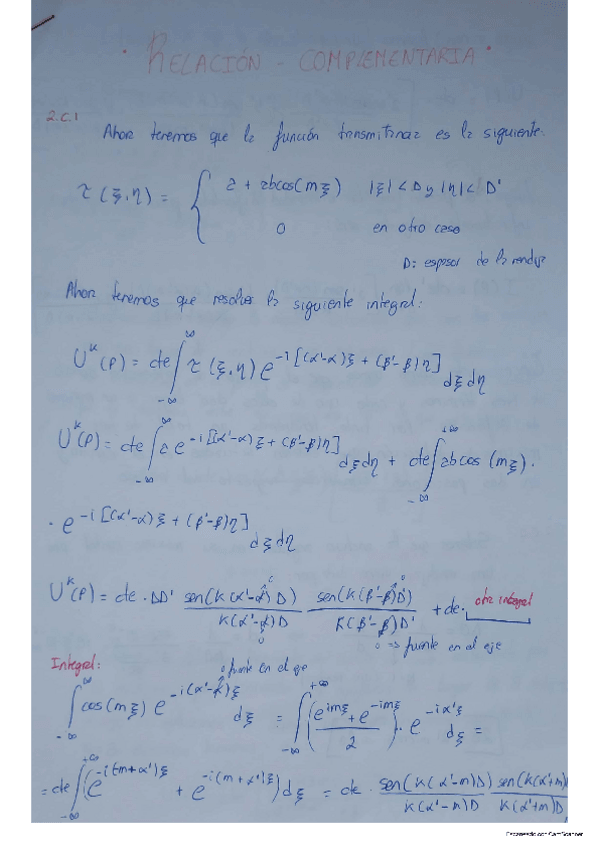 · RELACIÓN - COMPLEMENTARIA ·
2.C.1
Ahora tenemos que la función transmitancia es la siguiente:
τ(ξ,η) = { a + 2bcos(mξ) |ξ| < D y |η| < D'
0 en otro caso
D: espesor de la rendija
Ahora tenemos que resolver la siguiente integral:
U^k(P) = cte ∫_{-∞}^{∞} τ(ξ,η) e^{-i[(α'-α)ξ + (β'-β)η]} dξdη
U^k(P) = cte ∫_{-∞}^{∞} a e^{-i[(α'-α)ξ + (β'-β)η]} dξdη + cte ∫_{-∞}^{+∞} 2bcos(mξ) ·
· e^{-i[(α'-α)ξ + (β'-β)η]} dξdη
U^k(P) = cte · DD' sen(k(α'-α)D) / k(α'-α)D sen(k(β'-β)D') / k(β'-β)D' + cte · otra integral
0 => fuente en el eje
Integral: 0 fuente en el eje
∫_{-∞}^{∞} cos(mξ) e^{-i(α'-α)ξ} dξ = ∫_{-∞}^{+∞} (e^{imξ} + e^{-imξ} / 2) · e^{-iα'ξ} dξ =
= cte ∫_{-∞}^{+∞} (e^{-i(-m+α')ξ} + e^{-i(m+α')ξ}) dξ = cte · sen(k(α'-m)D) / k(α'-m)D sen(k(α'+m) / k(α'+m)D
Escaneado con CamScanner